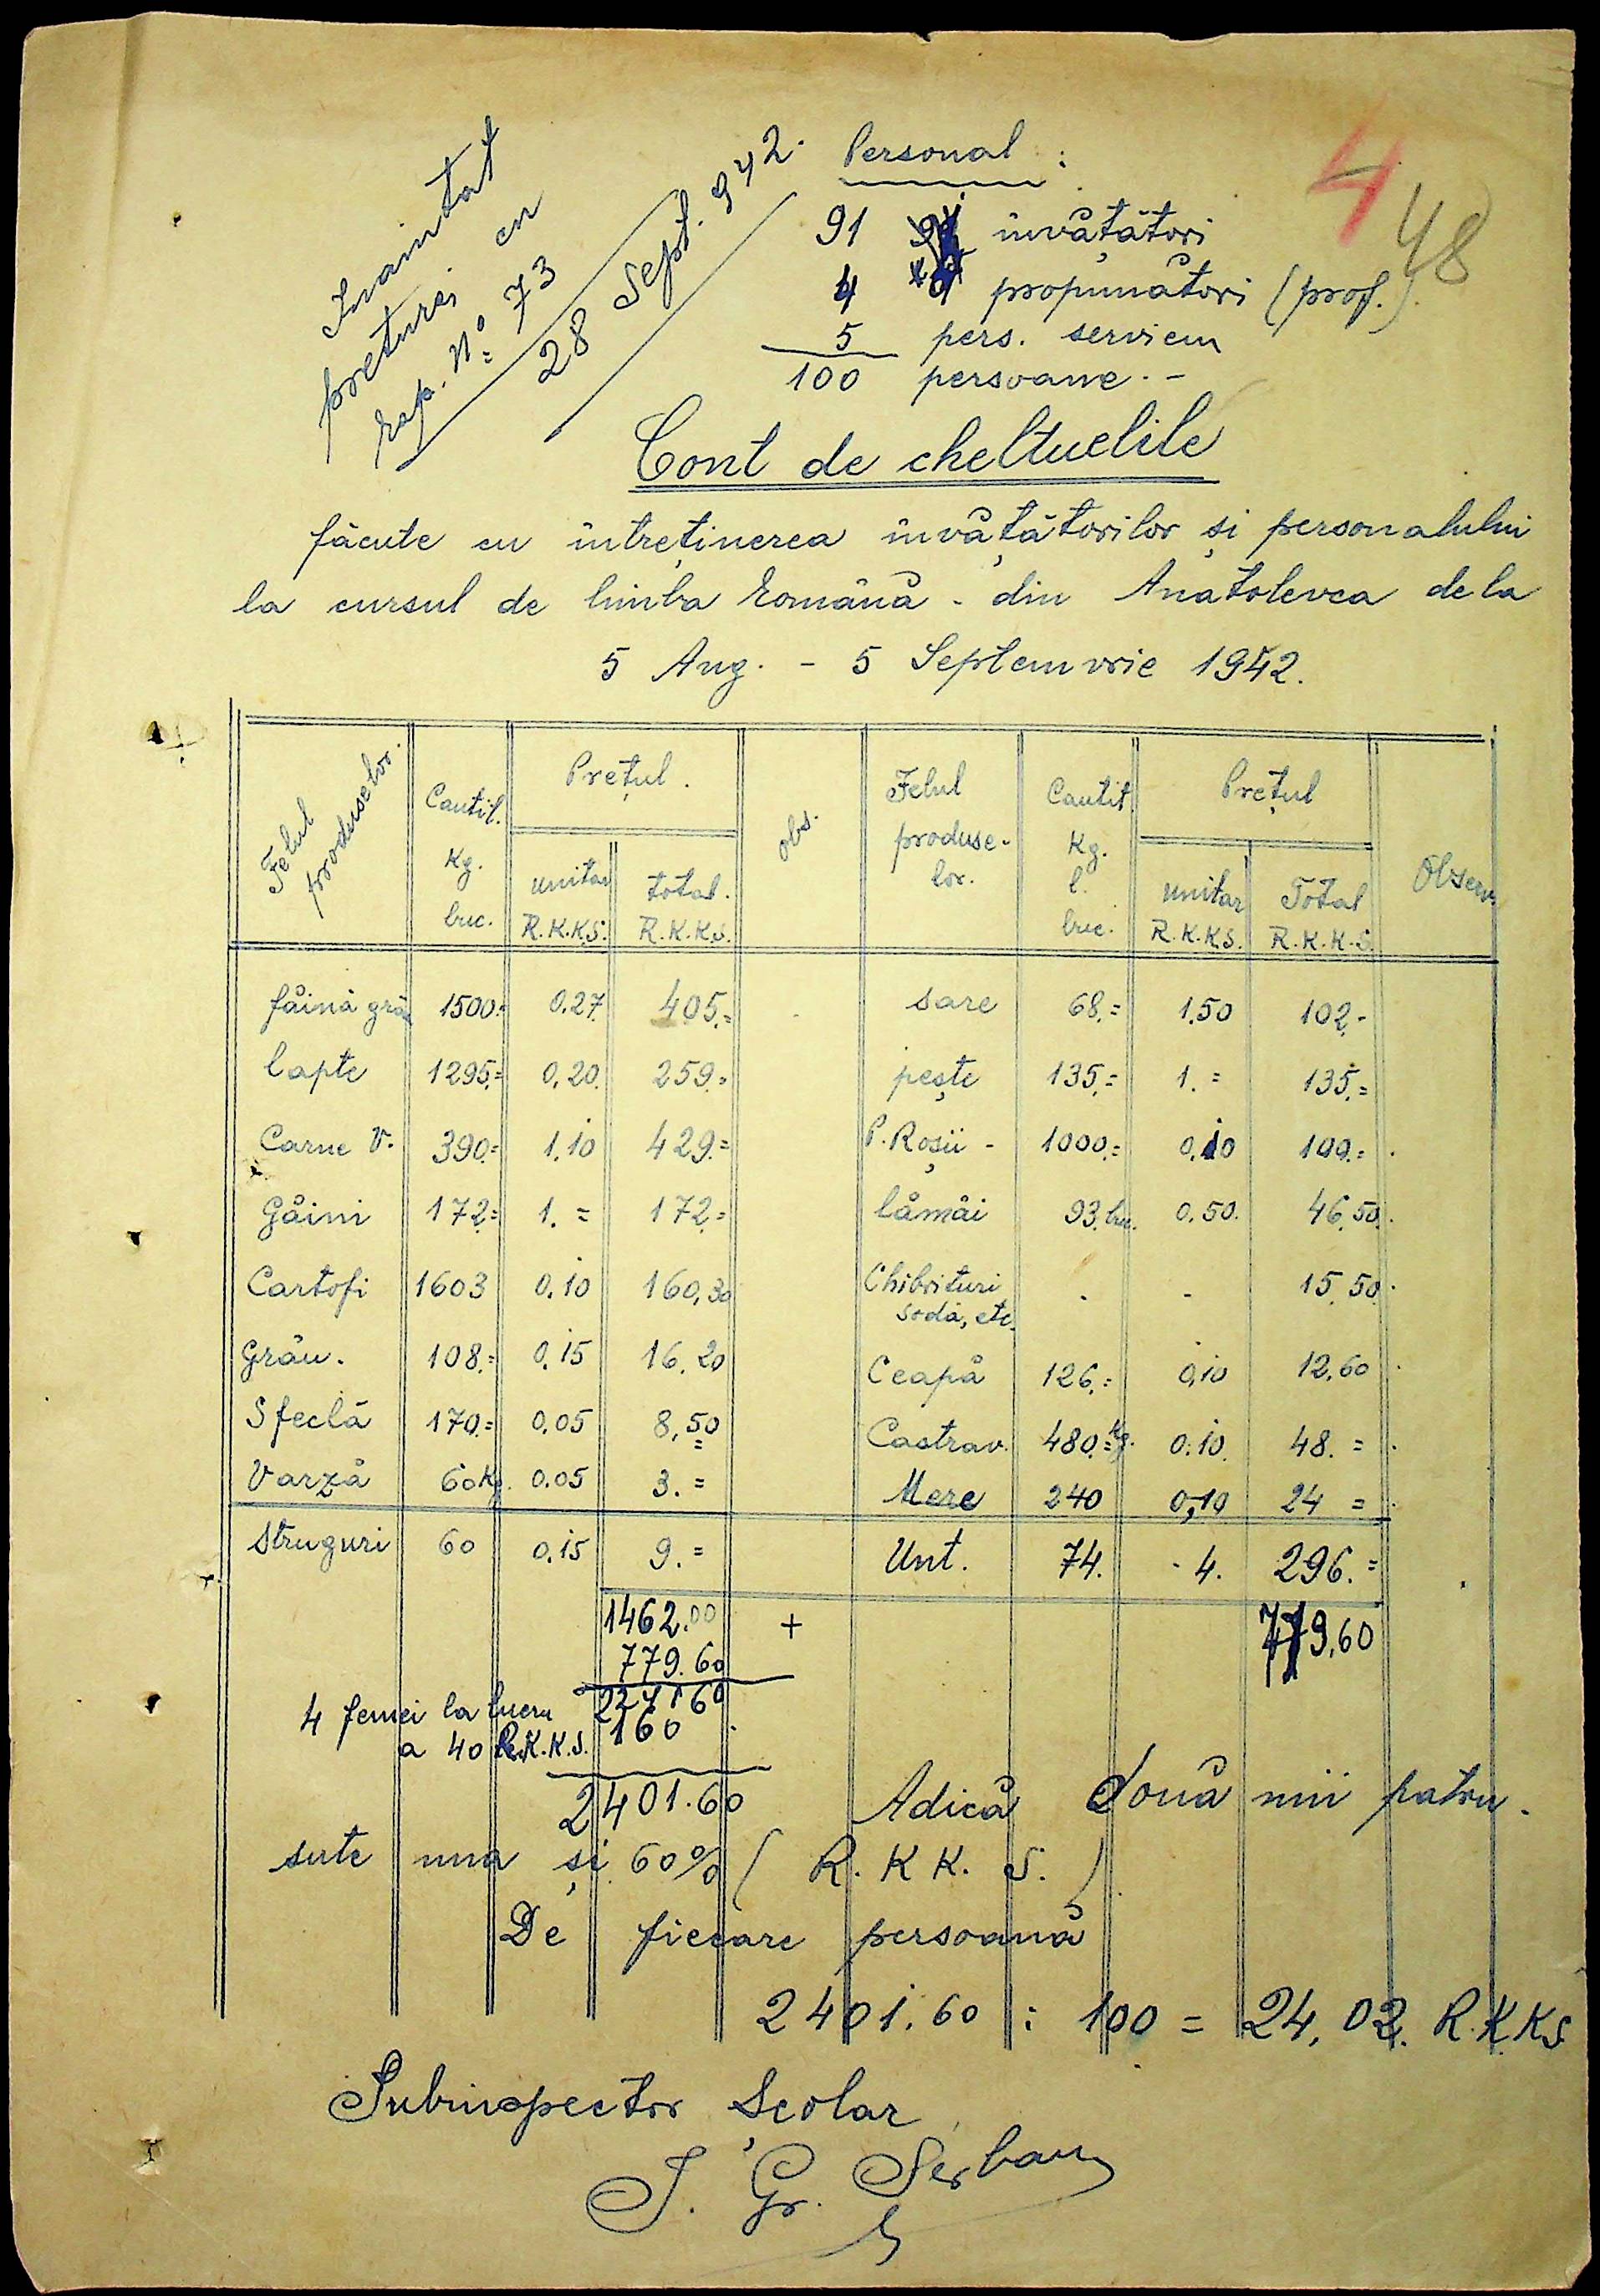 Inaintat
preturei cu
rap. Nº 73
28 Sept. 942.
4
48
Personal :
91 învățători
4 propunători (prof.)
5 pers. serviciu
100 persoane. -
Cont de cheltuelile
făcute cu întreținerea învățătorilor și personalului
la cursul de limba română - din Anatolevca de la
5 Aug. - 5 Septemvrie 1942.
Felul produselor. Cantit. Kg. buc. Prețul. unitar R.K.K.S. total. R.K.K.S. Obs. Felul produse-lor. Cantit. Kg. l. buc. Prețul unitar R.K.K.S. Total R.K.K.S. Observ.
făină grâu 1500.= 0.27 405.= sare 68.= 1.50 102.-
lapte 1295.= 0.20. 259.= pește 135.= 1. = 135.=
Carne V. 390.= 1.10 429.= P. Roșii - 1000.= 0.10 100.=
Găini 172.= 1. = 172.= lămâi 93 buc. 0.50. 46.50.
Cartofi 1603 0.10 160,30 Chibrituri sodă, etc. - - 15.50.
Grâu. 108.= 0.15 16.20 Ceapă 126.= 0,10 12,60
Sfeclă 170.= 0.05 8,50 Castrav. 480.= kg. 0.10. 48. =
Varză 60 Kg. 0.05 3. = Mere 240 0,10 24 =
Struguri 60 0.15 9. = Unt. 74. - 4. 296. =
1462.00 + 779,60
779.60
2241 60
4 femei la lucru 160
a 40 R.K.K.S.
2401.60 Adică două mii patru
sute una și 60% ( R. K K. S. )
De fiecare persoană
2401.60 : 100 = 24,02. R.K.KS
Subinspector Școlar
I. Gr. Șerban